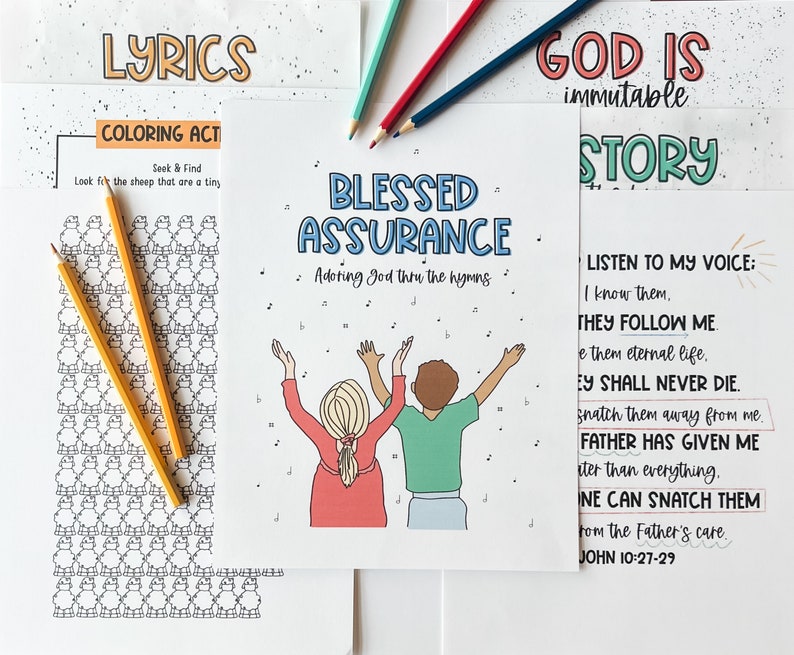 LYRICS
GOD IS
immutable
COLORING ACT
Seek & Find
Look for the sheep that are a tiny
STORY
BLESSED
ASSURANCE
Adoring God thru the hymns
LISTEN TO MY VOICE;
I know them,
THEY FOLLOW ME.
them eternal life,
SHALL NEVER DIE.
snatch them away from me.
FATHER HAS GIVEN ME
than everything,
CAN SNATCH THEM
from the Father's care.
JOHN 10:27-29